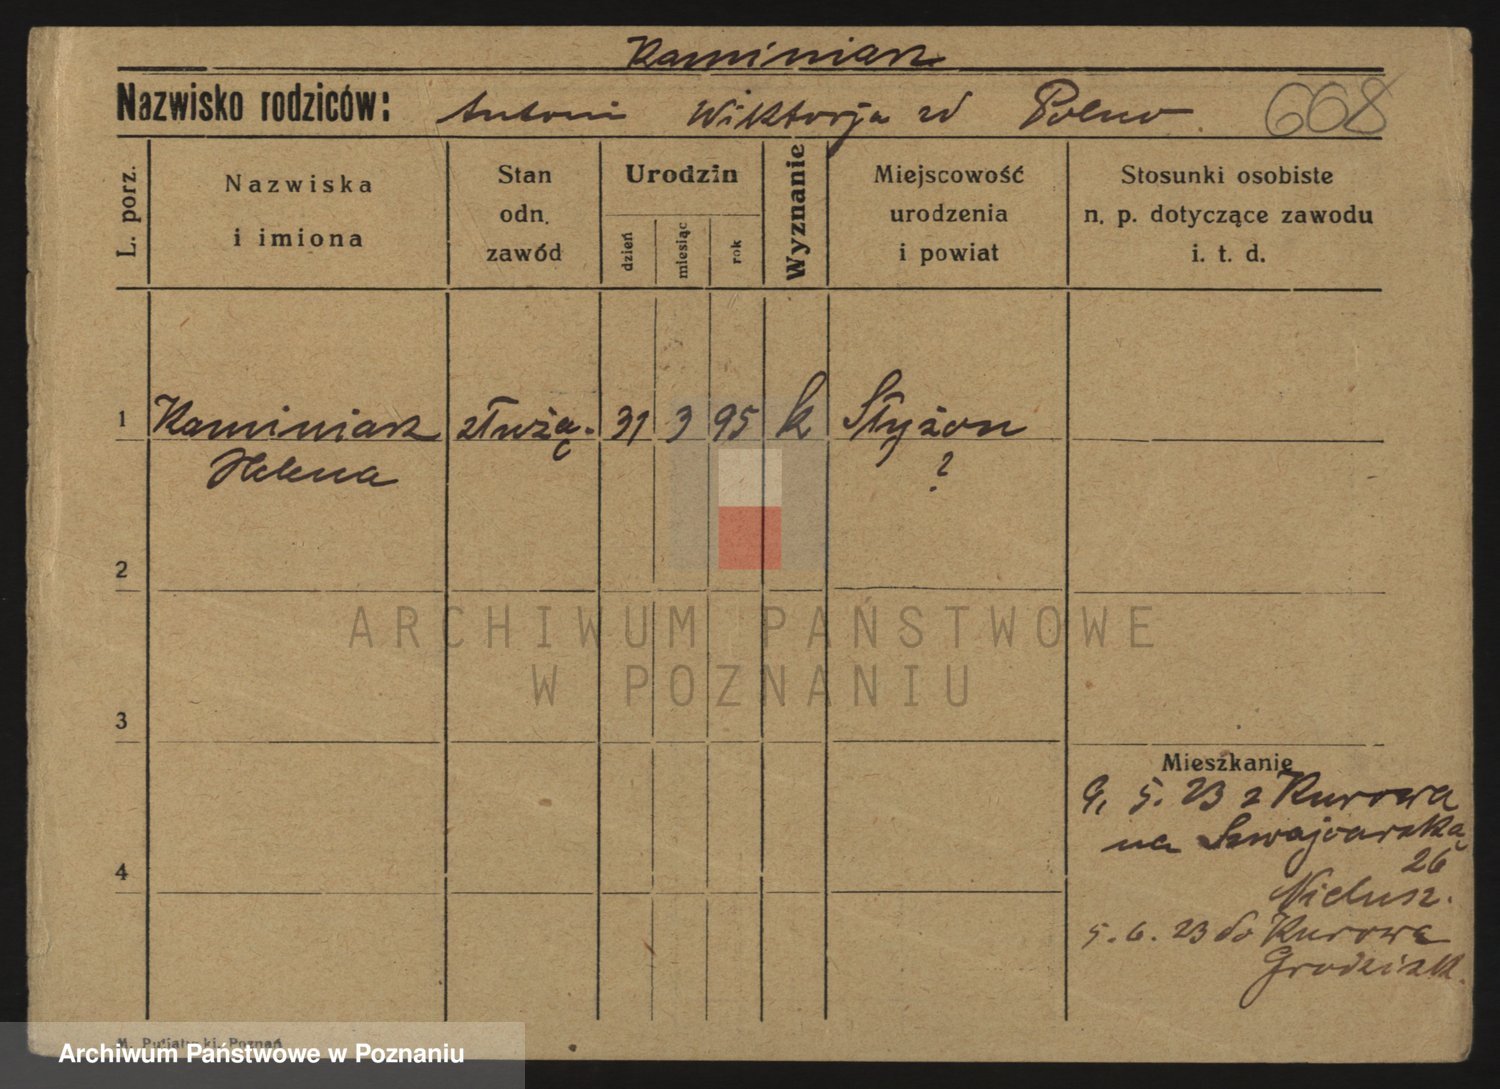 Kaminiarz
Nazwisko rodziców: Antoni Wiktorja zd Polno 668
L. porz.
Nazwiska
i imiona
Stan
odn.
zawód
Urodzin
dzień
miesiąc
rok
Wyznanie
Miejscowość
urodzenia
i powiat
Stosunki osobiste
n. p. dotyczące zawodu
i. t. d.
1 Kaminiarz służą. 31 3 95 k
Helena
?
2
3
4
Mieszkanie
5. 23 z Kurowa
na Szwajcarską
26
5. 6. 23 do Kurowa
Grodzisk.
ARCHIWUM PAŃSTWOWE
W POZNANIU
Archiwum Państwowe w Poznaniu